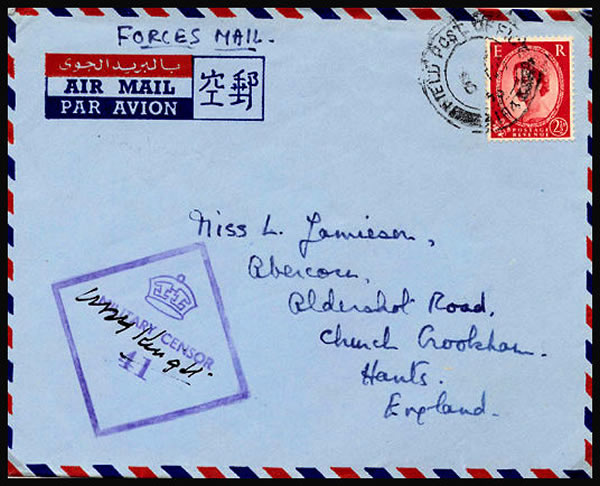 FORCES MAIL.
بالبريد الجوي
AIR MAIL
PAR AVION
空郵
FIELD POST OFFICE
E R
POSTAGE
REVENUE
2½D
Miss L. Jamieson,
Abercorn,
Aldershot Road,
Church Crookham.
Hants.
England.
MILITARY CENSOR
41